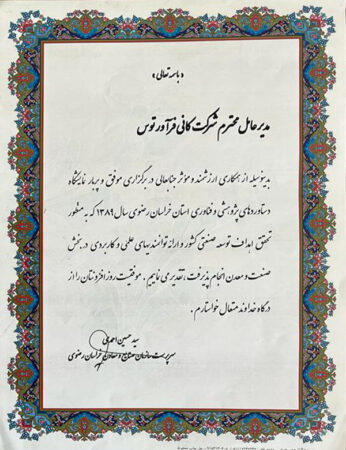 «باسمه تعالی»
مدیرعامل محترم شرکت کانی فرآور توس
بدینوسیله از همکاری ارزشمند و مؤثر جنابعالی در برگزاری موفق و پربار نمایشگاه
دستاوردهای پژوهشی و فناوری استان خراسان رضوی سال ۱۳۸۹ که به منظور
تحقق اهداف توسعه صنعتی کشور و ارائه توانمندیهای علمی و کاربردی در بخش
صنعت و معدن انجام پذیرفت، تقدیر می نماییم، موفقیت روزافزونتان را از
درگاه خداوند متعال خواستارم.
سید حسین احمدی
سرپرست سازمان صنایع و معادن خراسان رضوی